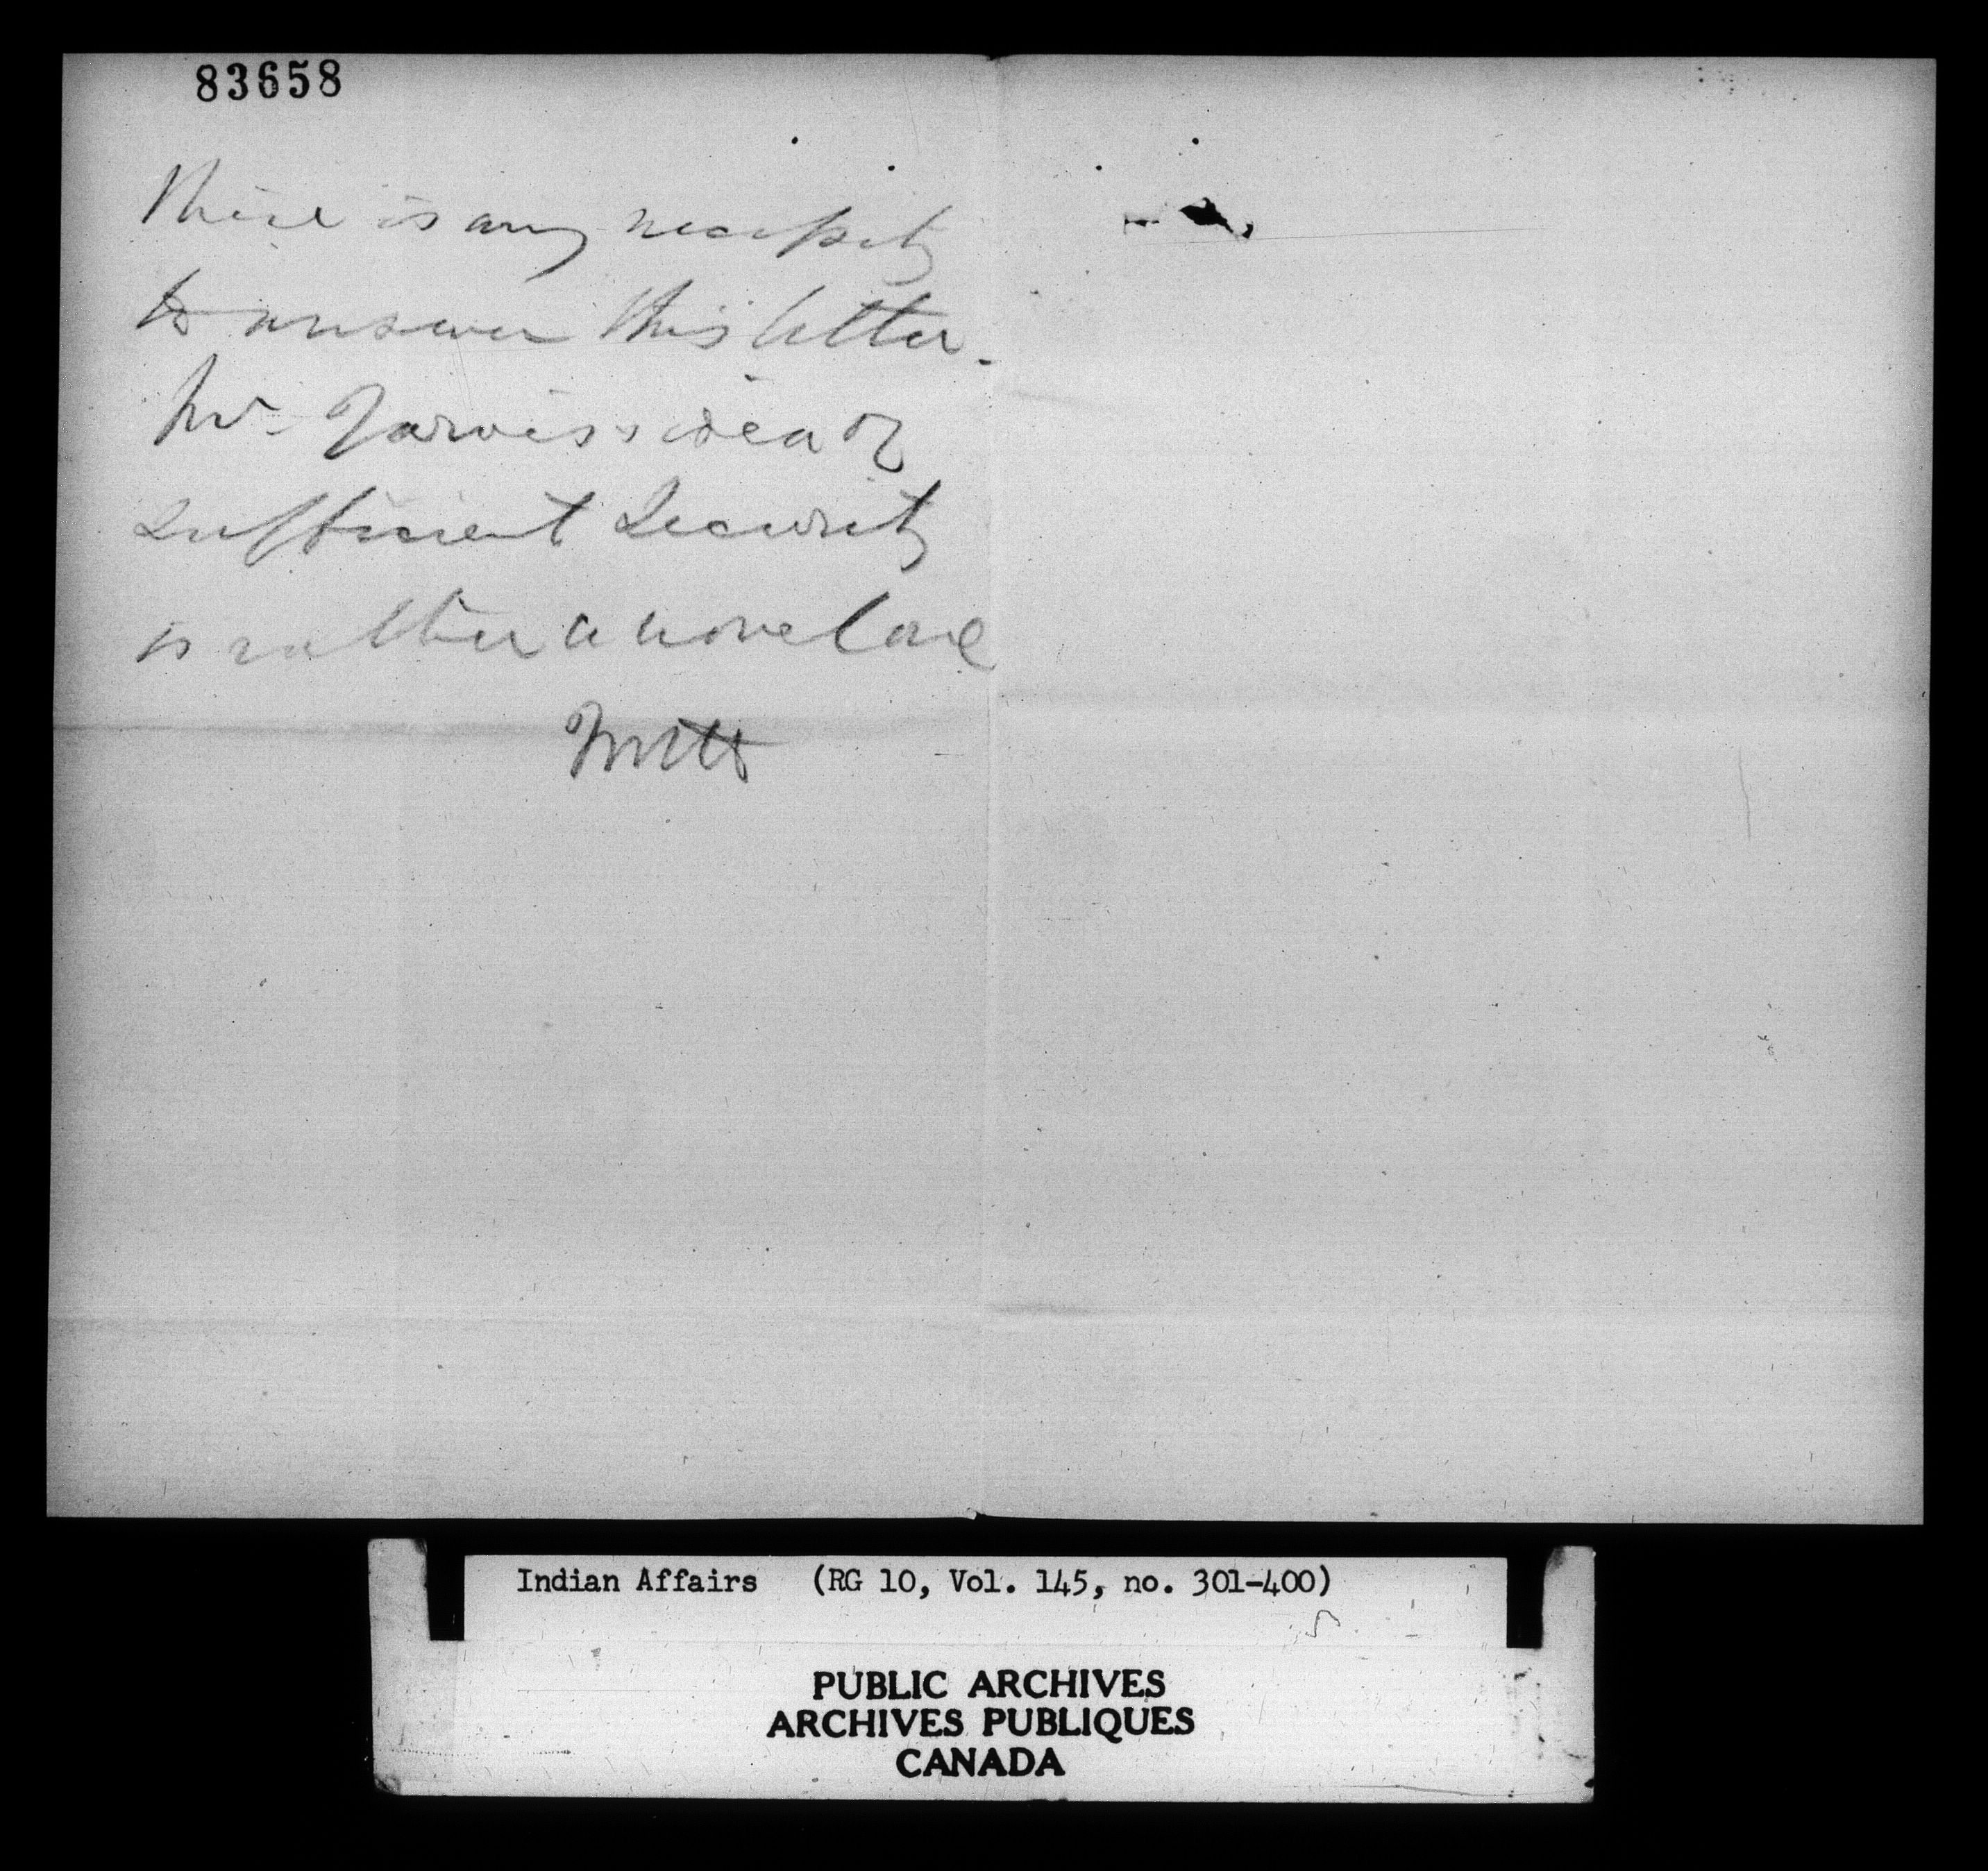 83658
there is any necessity
to answer this letter.
Mr. Jarvis's idea of
sufficient Security
is rather a novel one
Indian Affairs (RG 10, Vol. 145, no. 301-400)
PUBLIC ARCHIVES
ARCHIVES PUBLIQUES
CANADA